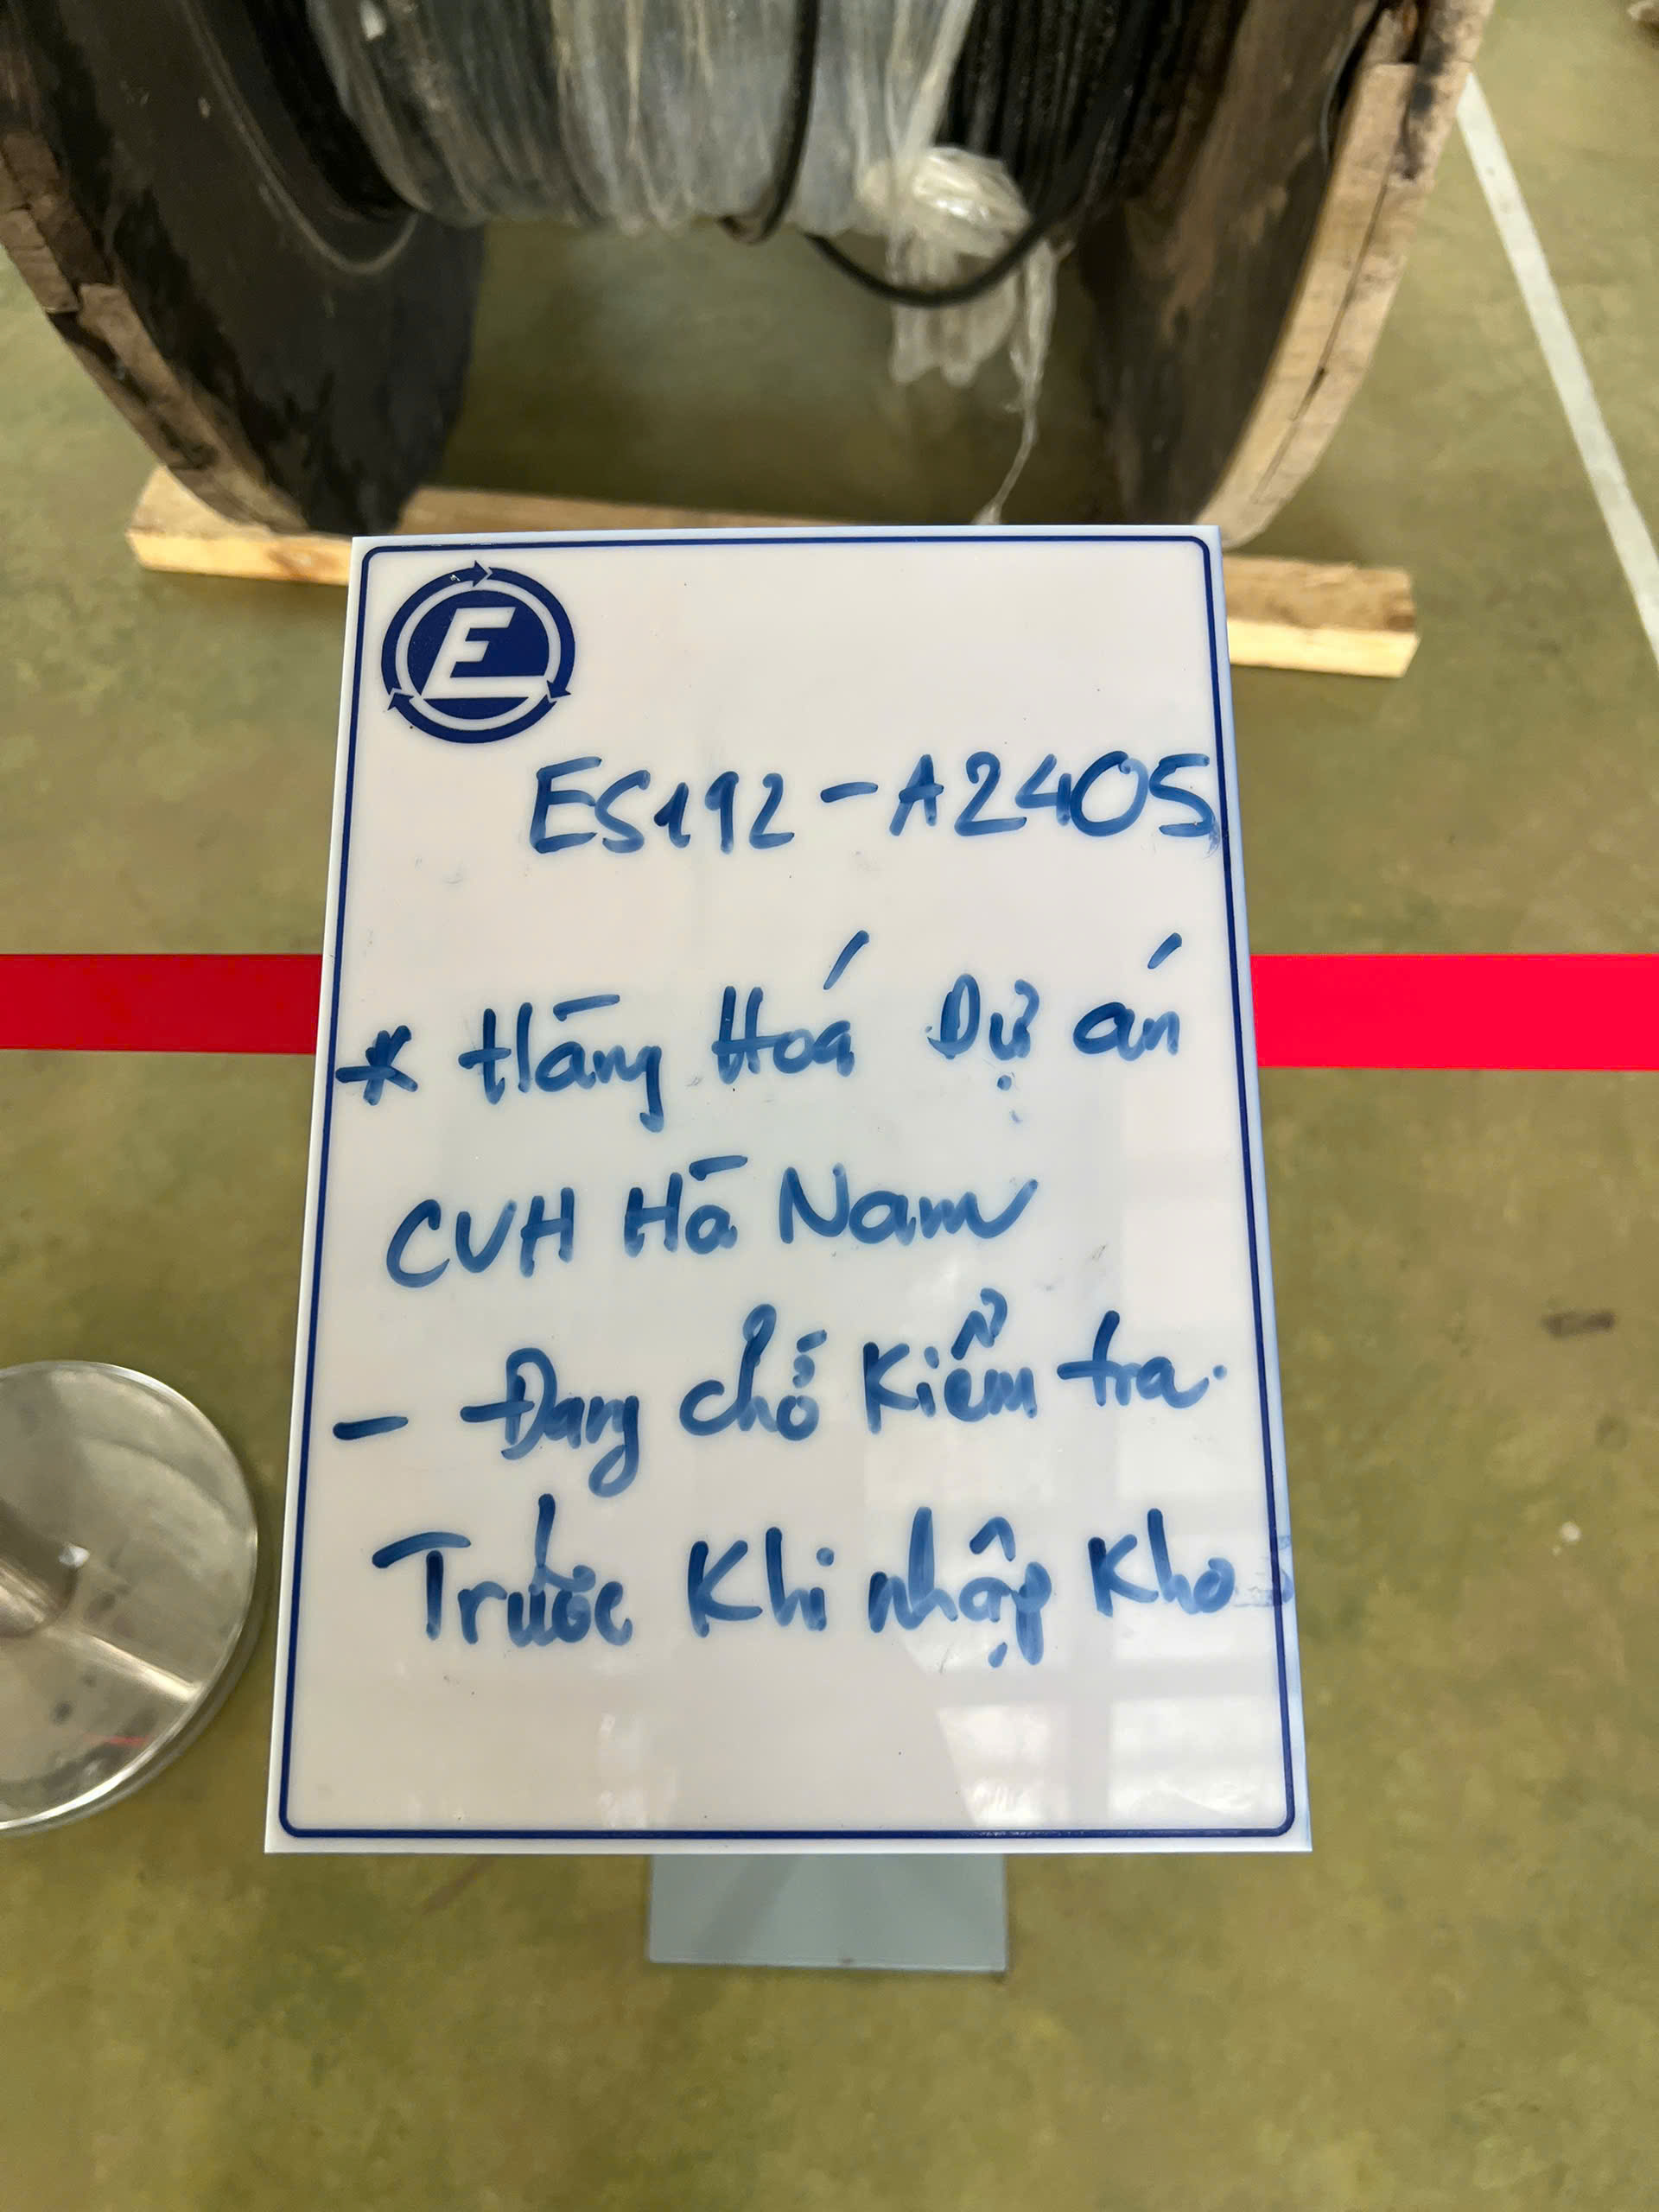 E
ES192-A2405
* Hàng Hoá Dự án
CVH Hà Nam
- Đang chờ Kiểm tra.
Trước Khi nhập Kho